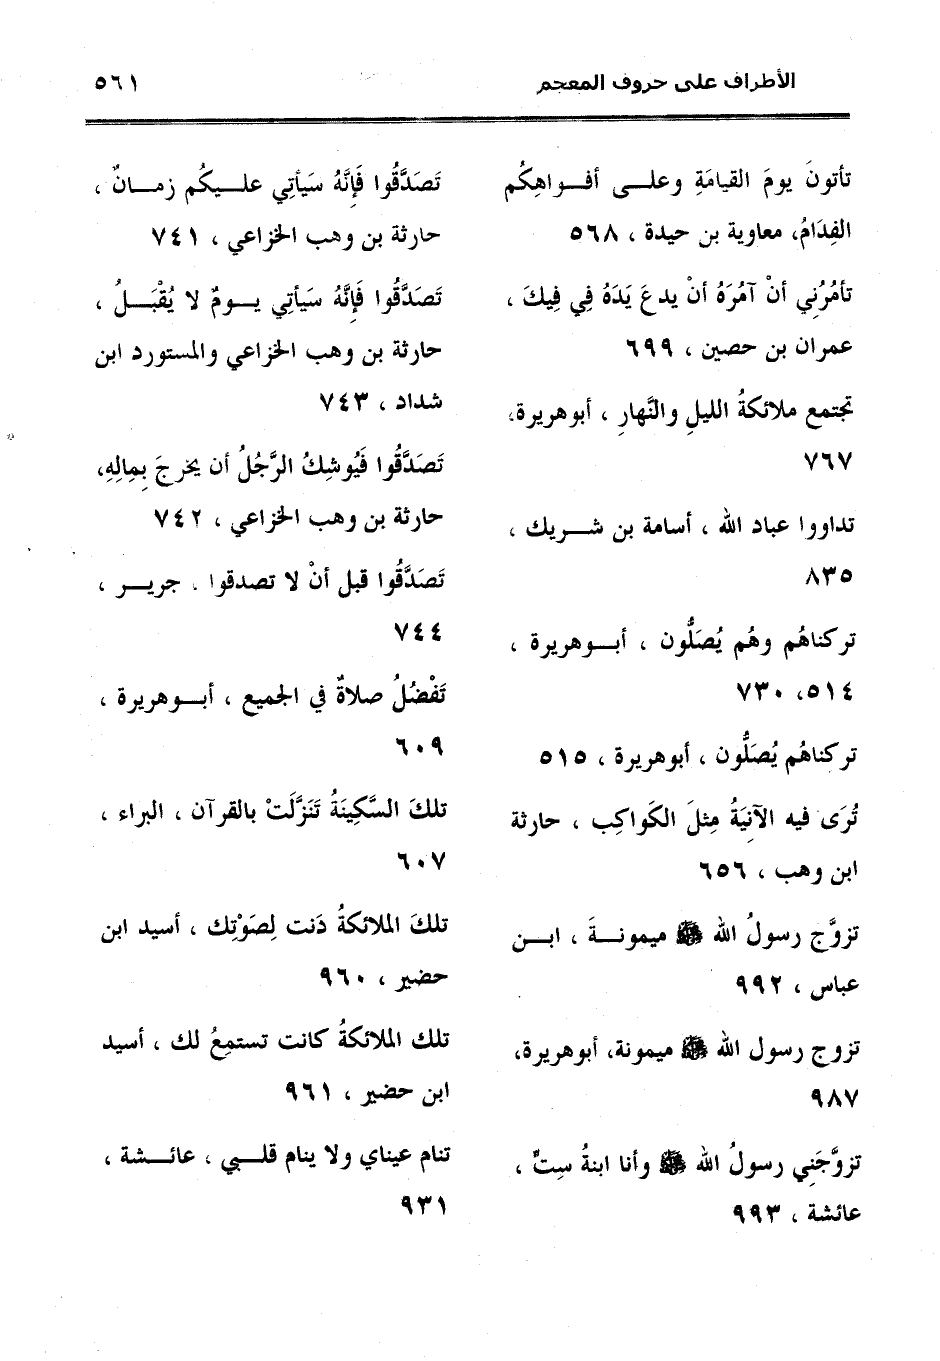 الأطراف على حروف المعجم ٥٦١
تأتونَ يومَ القيامَةِ وعلـى أفـواهِكُم
الفِدَامُ، معاوية بن حيدة ، ٥٦٨
تأمُرُني أنْ آمُرَهُ أنْ يدعَ يَدَهُ فِي فِيكَ ،
عمران بن حصين ، ٦٩٩
تجتمع ملائكةُ الليلِ والنَّهارِ ، أبوهريرة،
٧٦٧
تداووا عباد الله ، أسامة بن شـريك ،
٨٣٥
تركناهُم وهُم يُصَلُّون ، أبـوهريرة ،
٥١٤، ٧٣٠
تركناهُم يُصَلُّون ، أبوهريرة ، ٥١٥
تُرَى فيه الآنِيَةُ مِثلَ الكَواكِبِ ، حارثة
ابن وهب ، ٦٥٦
تزوَّج رسولُ الله ﷺ ميمونـةَ ، ابـن
عباس ، ٩٩٢
تزوج رسول الله ﷺ ميمونة، أبوهريرة،
٩٨٧
تزوَّجَنِي رسولُ الله ﷺ وأنا ابنةُ سِتٍّ ،
عائشة ، ٩٩٣
تَصَدَّقُوا فَإِنَّهُ سَيَأتِي علـيكُم زمـانٌ ،
حارثة بن وهب الخزاعي ، ٧٤١
تَصَدَّقُوا فَإِنَّهُ سَيَأتِي يـومٌ لا يُقْبَـلُ ،
حارثة بن وهب الخزاعي والمستورد ابن
شداد ، ٧٤٣
تَصَدَّقُوا فَيُوشِكُ الرَّجُلُ أن يخرجَ بِمالِهِ،
حارثة بن وهب الخزاعي ، ٧٤٢
تَصَدَّقُوا قبل أنْ لا تصدقوا . جريـر ،
٧٤٤
تَفْضُلُ صلاةٌ في الجميع ، أبـوهريرة ،
٦٠٩
تلكَ السَّكِينَةُ تَنَزَّلَتْ بالقرآن ، البراء ،
٦٠٧
تلكَ الملائكةُ دَنت لِصَوْتِك ، أسيد ابن
حضير ، ٩٦٠
تلك الملائكةُ كانت تستمِعُ لك ، أسيد
ابن حضير ، ٩٦١
تنام عيناي ولا ينام قلـبي ، عائـشة ،
٩٣١